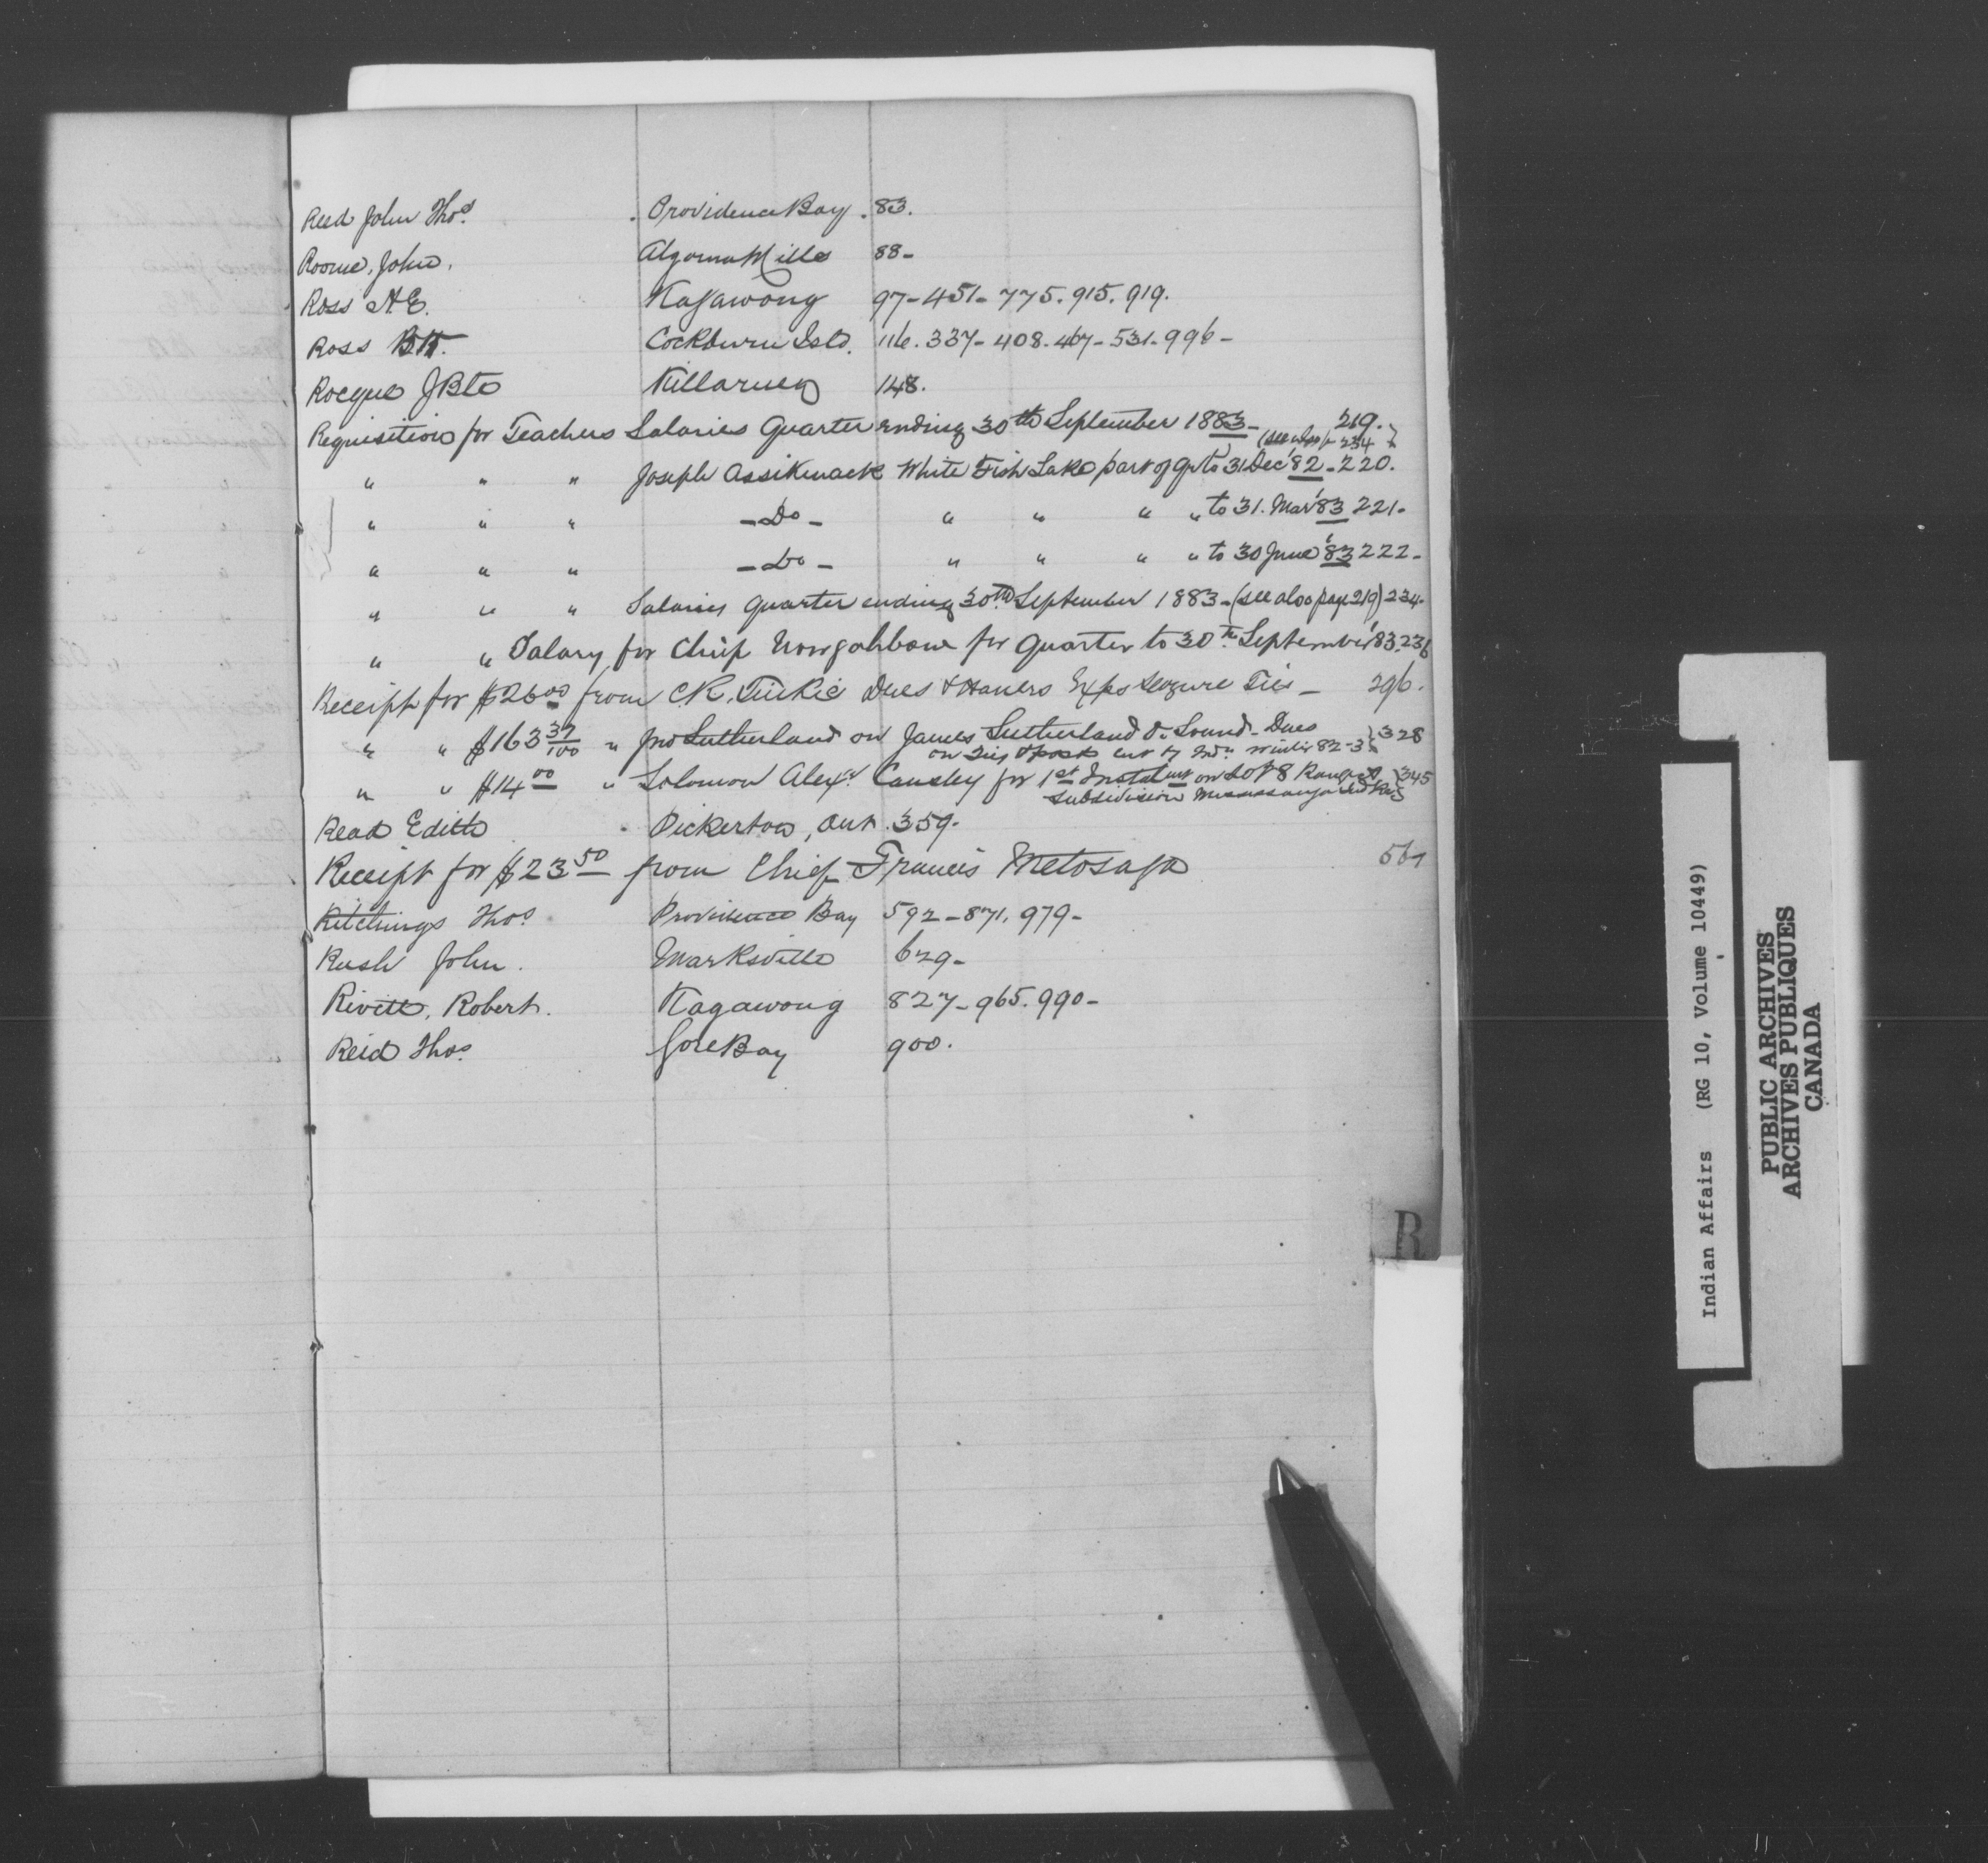 Reed John Thos. Providence Bay. 83.
Roome, John. Algoma Mills 88-
Ross A.E. Kagawong 97-451-775.915.919.
Ross B.H. Cockburn Isld. 116.337-408.467-531-996-
Rocque J Bte Killarney 148.
Requisition for Teachers Salaries Quarter ending 30th September 1883- 219.
(see also p 234)
" " " Joseph Assikinack White Fish Lake part of Qr to 31 Dec '82-220.
" " " -Do- " " " " to 31. Mar '83 221-
" " " -Do- " " " " to 30 June '83 222-
" " " Salaries Quarter ending 30th September 1883-(see also page 219) 234-
" " Salary for Chief for Quarter to 30th September '83. 236
Receipt for $26.00 from C.K. Dues & Exps Seizure Ties - 296.
" " $163 37/100 " Jno Sutherland on James Sutherland O. Sound- Dues } 328
on Ties & posts cut by Indn winter 82-3
" " $14 00 " Solomon Alexr Causley for 1st Instalmt on Lot 8 Range } 345
Subdivision Mississauga Ind Res
Read Edith Pickerton, Ont. 359-
Receipt for $23 50 from Chief Francis Metosaga 567
Ritchings Thos. Providence Bay 592-871.979-
Rush John. Marksville 629-
Rivett, Robert. Kagawong 827-965.990-
Reid Thos. Gore Bay 900.
R
Indian Affairs (RG 10, Volume 10449)
PUBLIC ARCHIVES
ARCHIVES PUBLIQUES
CANADA